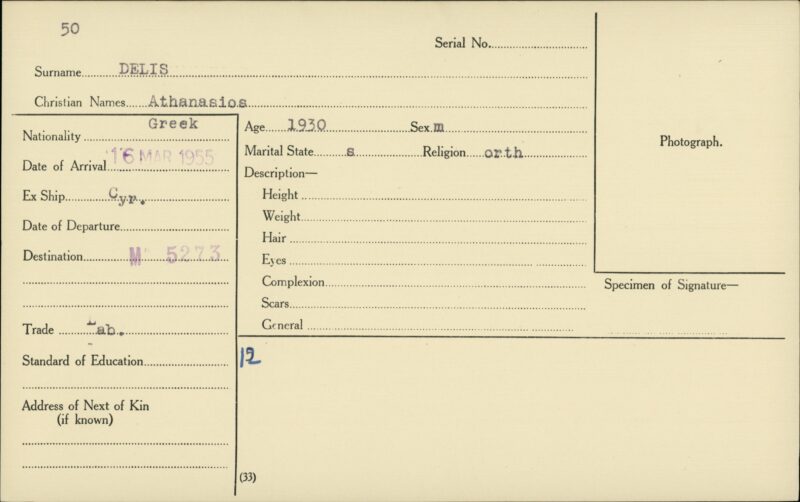 50
Serial No.
Surname DELIS
Christian Names Athanasios
Nationality Greek
Date of Arrival 16 MAR 1955
Ex Ship Cyr.
Date of Departure
Destination M 5273
Trade Lab.
Standard of Education
Address of Next of Kin
(if known)
Age 1930 Sex m
Marital State s Religion orth
Description—
Height
Weight
Hair
Eyes
Complexion
Scars
General
12
(33)
Photograph.
Specimen of Signature—